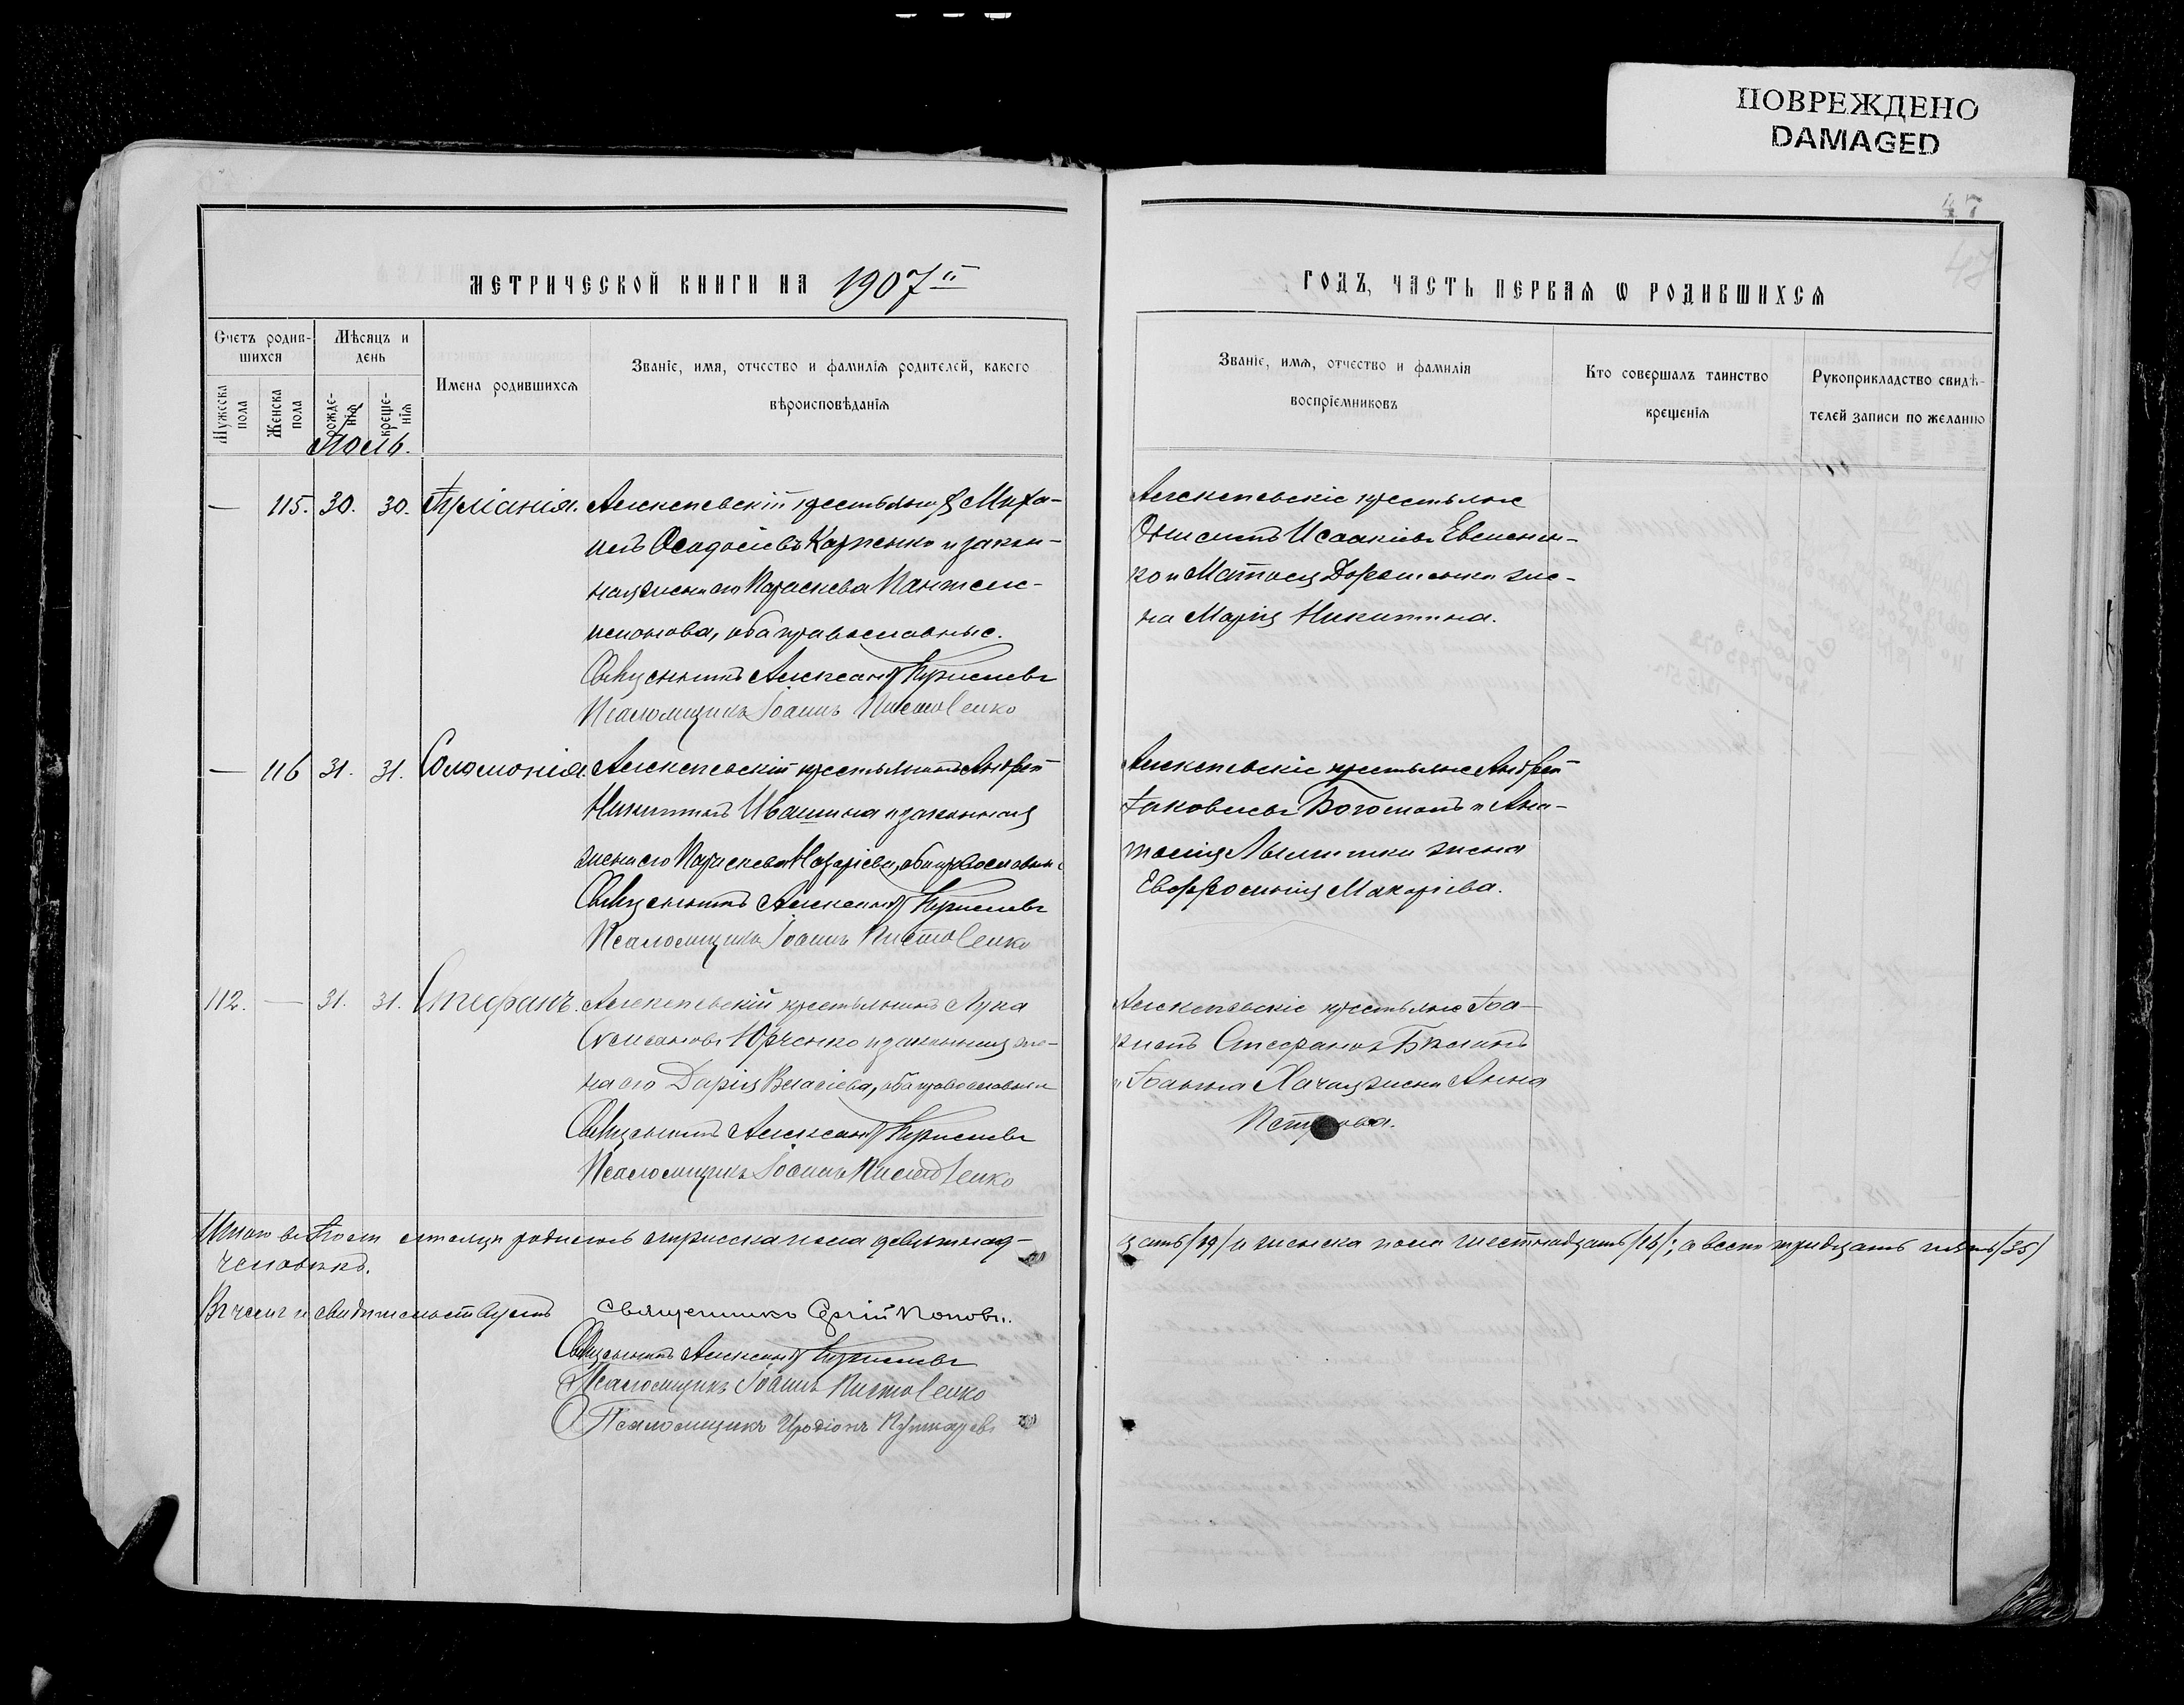 ПОВРЕЖДЕНО
DAMAGED
47
МЕТРИЧЕСКОЙ КНИГИ НА 1907й
ГОДЪ, ЧАСТЬ ПЕРВАЯ Ѡ РОДИВШИХСЯ
Счетъ родив-
шихся
Мужеска пола
Женска пола
Мѣсяцъ и
день
рожде-
нія
креще-
нія
Имена родившихся
Званіе, имя, отчество и фамилія родителей, какого
вѣроисповѣданія
Званіе, имя, отчество и фамилія
воспріемниковъ
Кто совершалъ таинство
крещенія
Рукоприкладство свидѣ-
телей записи по желанію
Іюль.
— 115. 30. 30. Алексѣевскій крестьянинъ Миха-
илъ Ѳеодосіевъ Карпенко и закон-
ная жена его Параскева Пантеле-
имонова, оба православные.
Священникъ Александръ
Псаломщикъ Іоаннъ
Алексѣевскіе крестьяне
Онисимъ Исаакіевъ Евсиенко
и
же-
на Марія Никитина.
— 116 31. 31. Соломонія. Алексѣевскій крестьянинъ Андрей
Никитинъ Ивашина и законная
жена его Параскева Назаріева, оба православные
Священникъ Александръ
Псаломщикъ Іоаннъ
Алексѣевскіе крестьяне Андрей
Іаковлевъ и Ана-
тосія жена
Евфросинія Макаріева.
112. — 31. 31. Стефанъ. Алексѣевскій крестьянинъ Лука
Юрченко и законная же-
на его Дарія Власіева, оба православные
Священникъ Александръ
Псаломщикъ Іоаннъ
Алексѣевскіе крестьяне Іоа-
Стефановъ
и Іоанна жена Анна
Петрова.
Итого въ Іюлѣ мѣсяцѣ родилось мужеска пола девятнад-
цать /19/ и женска пола шестнадцать /16/; а всего тридцать пять /35/
человѣкъ.
Въ чемъ и свидѣтельствуемъ Священникъ Сергій Поповъ.
Священникъ Александръ
Псаломщикъ Іоаннъ
Псаломщикъ Иродіонъ Пушкаревъ